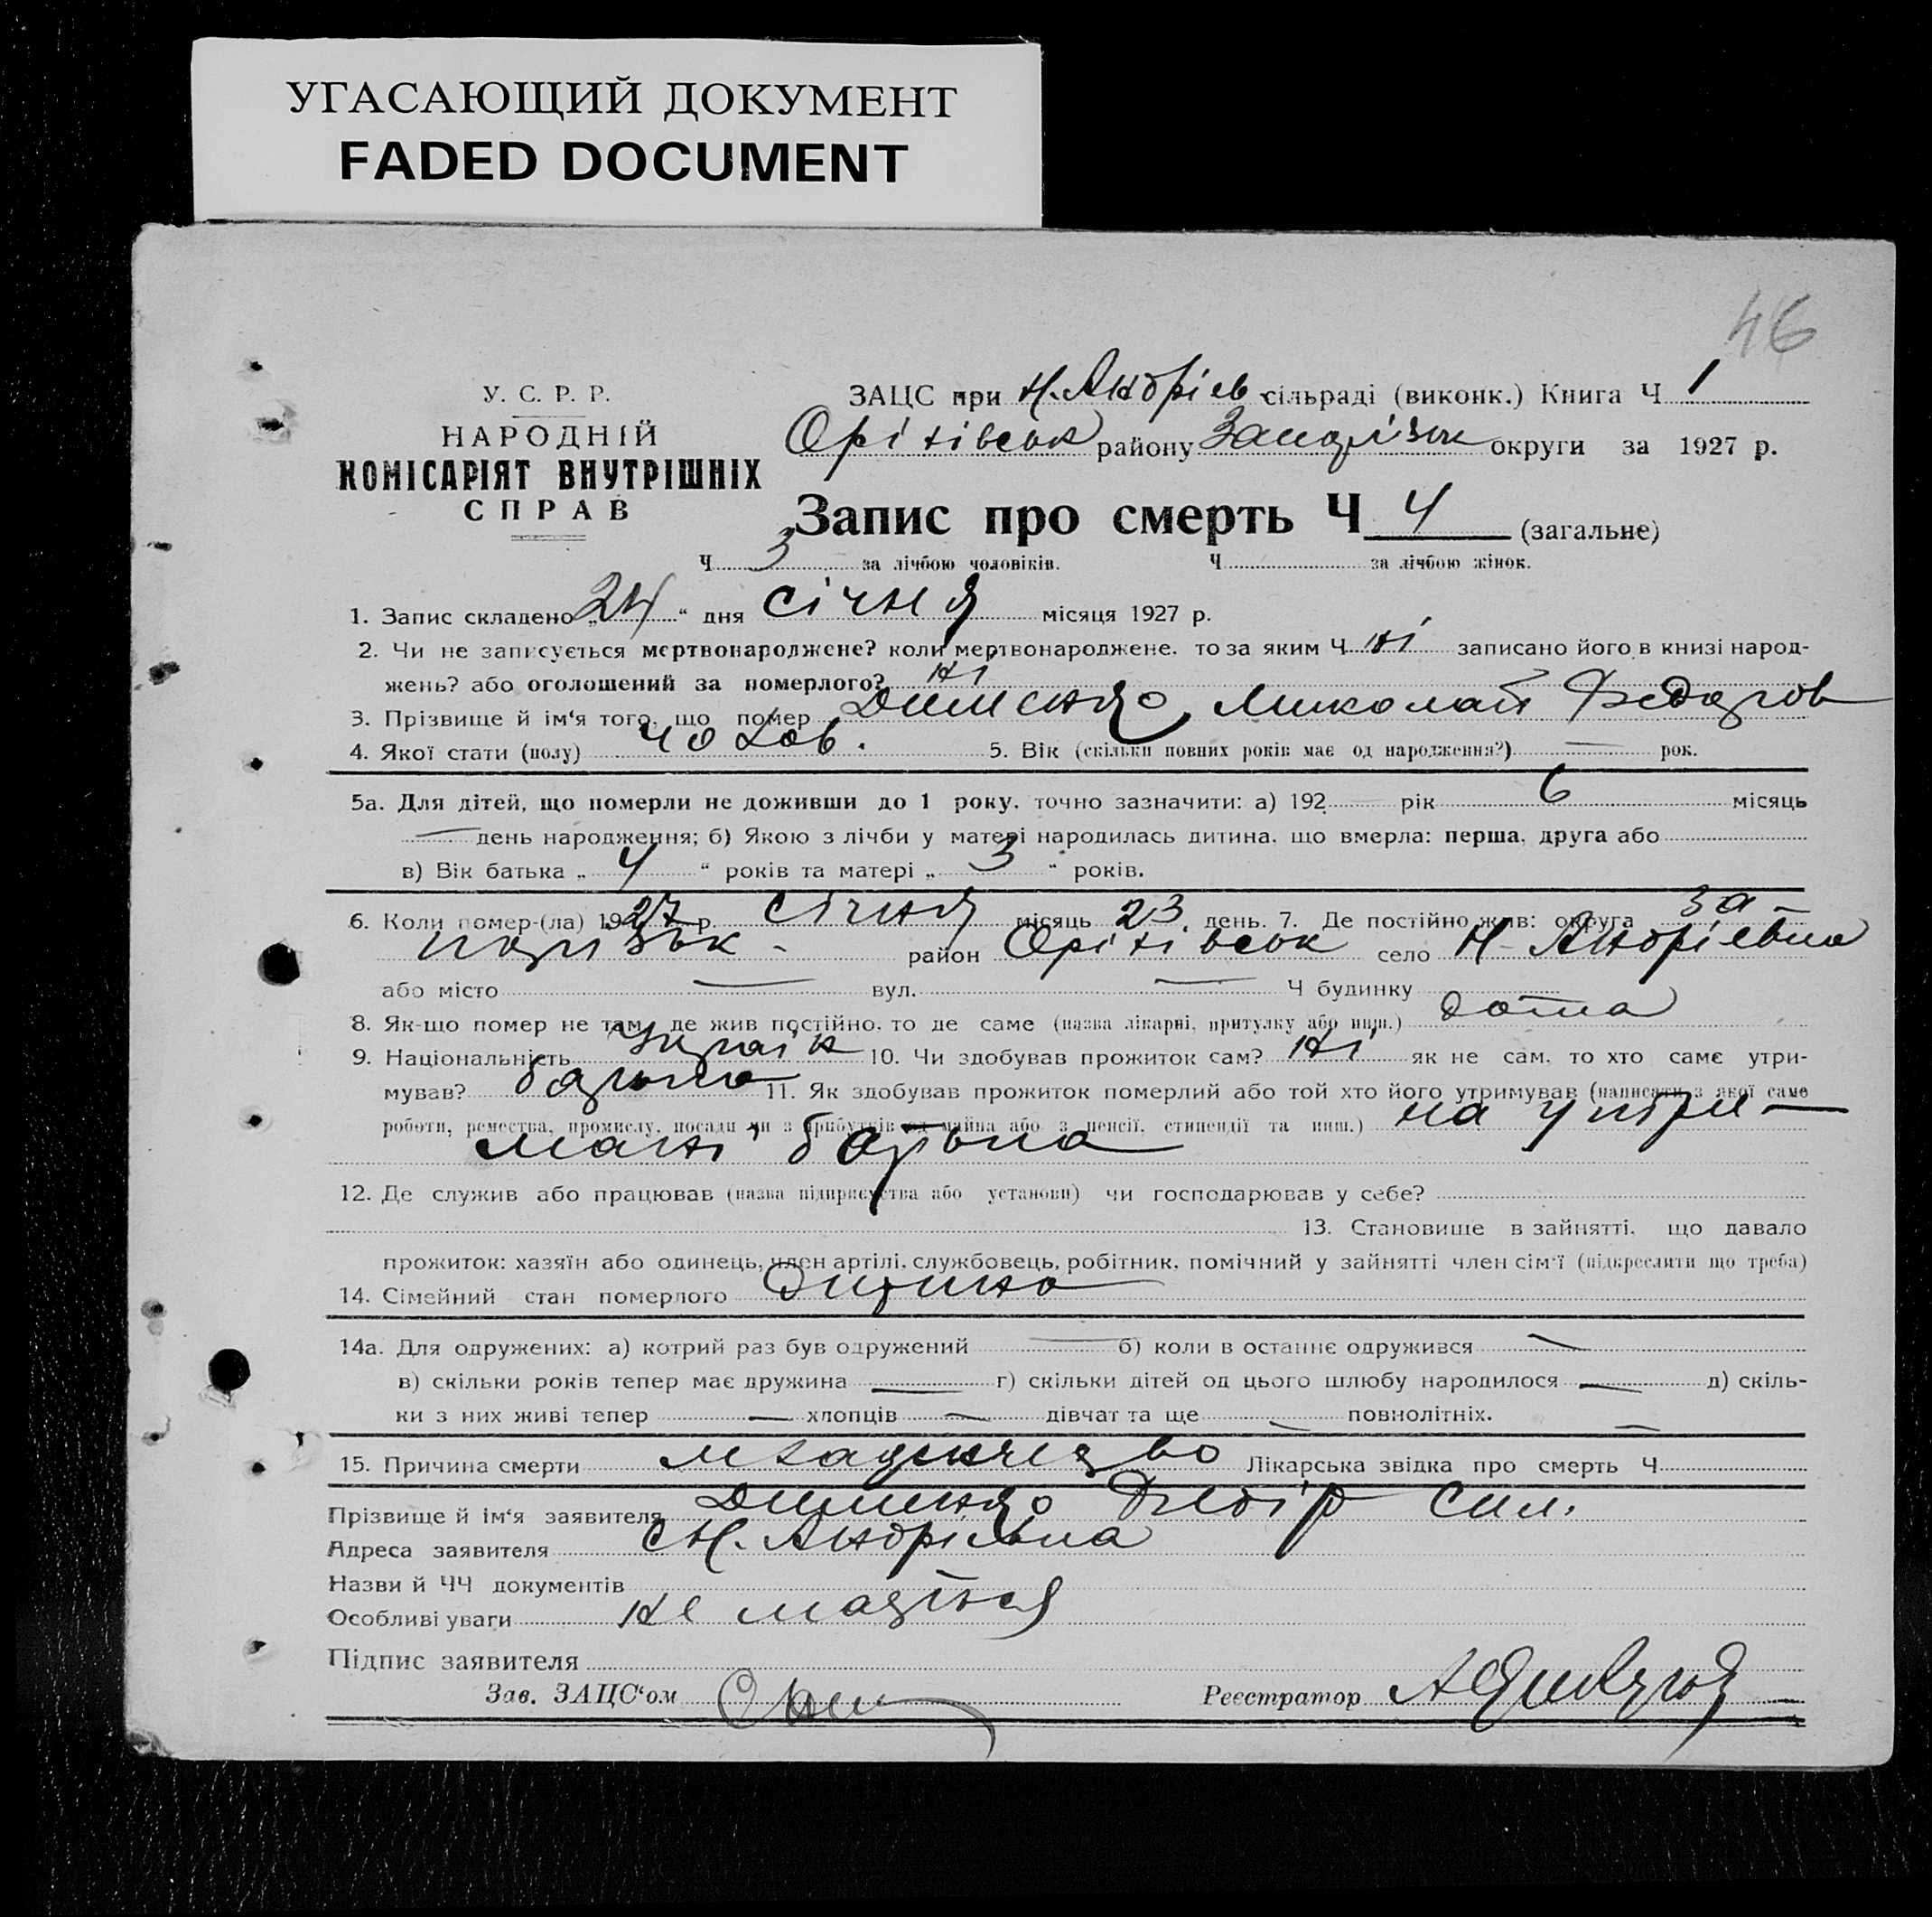 УГАСАЮЩИЙ ДОКУМЕНТ
FADED DOCUMENT
46
У. С. Р. Р.
НАРОДНІЙ
КОМІСАРІЯТ ВНУТРІШНІХ
СПРАВ
ЗАЦС при Н. Андріев сільраді (виконк.) Книга Ч 1
Оріхівськ району Запорізьк округи за 1927 р.
Запис про смерть Ч 4 (загальне)
Ч 3 за лічбою чоловіків. Ч за лічбою жінок.
1. Запис складено „24“ дня січня місяця 1927 р.
2. Чи не записується мертвонароджене? коли мертвонароджене. то за яким Ч ні записано його в книзі народ-
жень? або оголошений за померлого? ні
3. Прізвище й ім‘я того, що помер Дименко Миколай Федоров
4. Якої стати (полу) чолов. 5. Вік (скільки повних років має од народження?) — рок.
5а. Для дітей, що померли не доживши до 1 року. точно зазначити: а) 192 рік 6 місяць
— день народження; б) Якою з лічби у матері народилась дитина. що вмерла: перша. друга або
в) Вік батька „ 4 “ років та матері „ 3 “ років.
6. Коли помер-(ла) 1927 р. січня місяць 23 день. 7. Де постійно жив: округа За-
поризьк - район Оріхівськ село Н-Андрієвка
або місто — вул. — Ч будинку
8. Як-що помер не там, де жив постійно, то де саме (назва лікарні, притулку або инш.) дома
9. Національність Україн 10. Чи здобував прожиток сам? ні як не сам. то хто саме утри-
мував? батько 11. Як здобував прожиток померлий або той хто його утримував (написати з якої саме
роботи, ремества, промислу, посади чи з прибутків од майна або з пенсії, стипендії та инш.) на утри-
мані батька
12. Де служив або працював (назва підприємства або установи) чи господарював у себе?
13. Становище в зайнятті, що давало
прожиток: хазяїн або одинець, член артілі, службовець, робітник, помічний у зайнятті член сім‘ї (підкреслити що треба)
14. Сімейний стан померлого дитина
14а. Для одружених: а) котрий раз був одружений — б) коли в останнє одружився —
в) скільки років тепер має дружина — г) скільки дітей од цього шлюбу народилося — д) скіль-
ки з них живі тепер — хлопців — дівчат та ще — повнолітніх. —
15. Причина смерти младенчество Лікарська звідка про смерть Ч
Прізвище й ім‘я заявителя Дименко Федір Сил.
Адреса заявителя с Н. Андрієвка
Назви й ЧЧ документів
Особливі уваги не мається
Підпис заявителя
Зав. ЗАЦС‘ом
Реєстратор